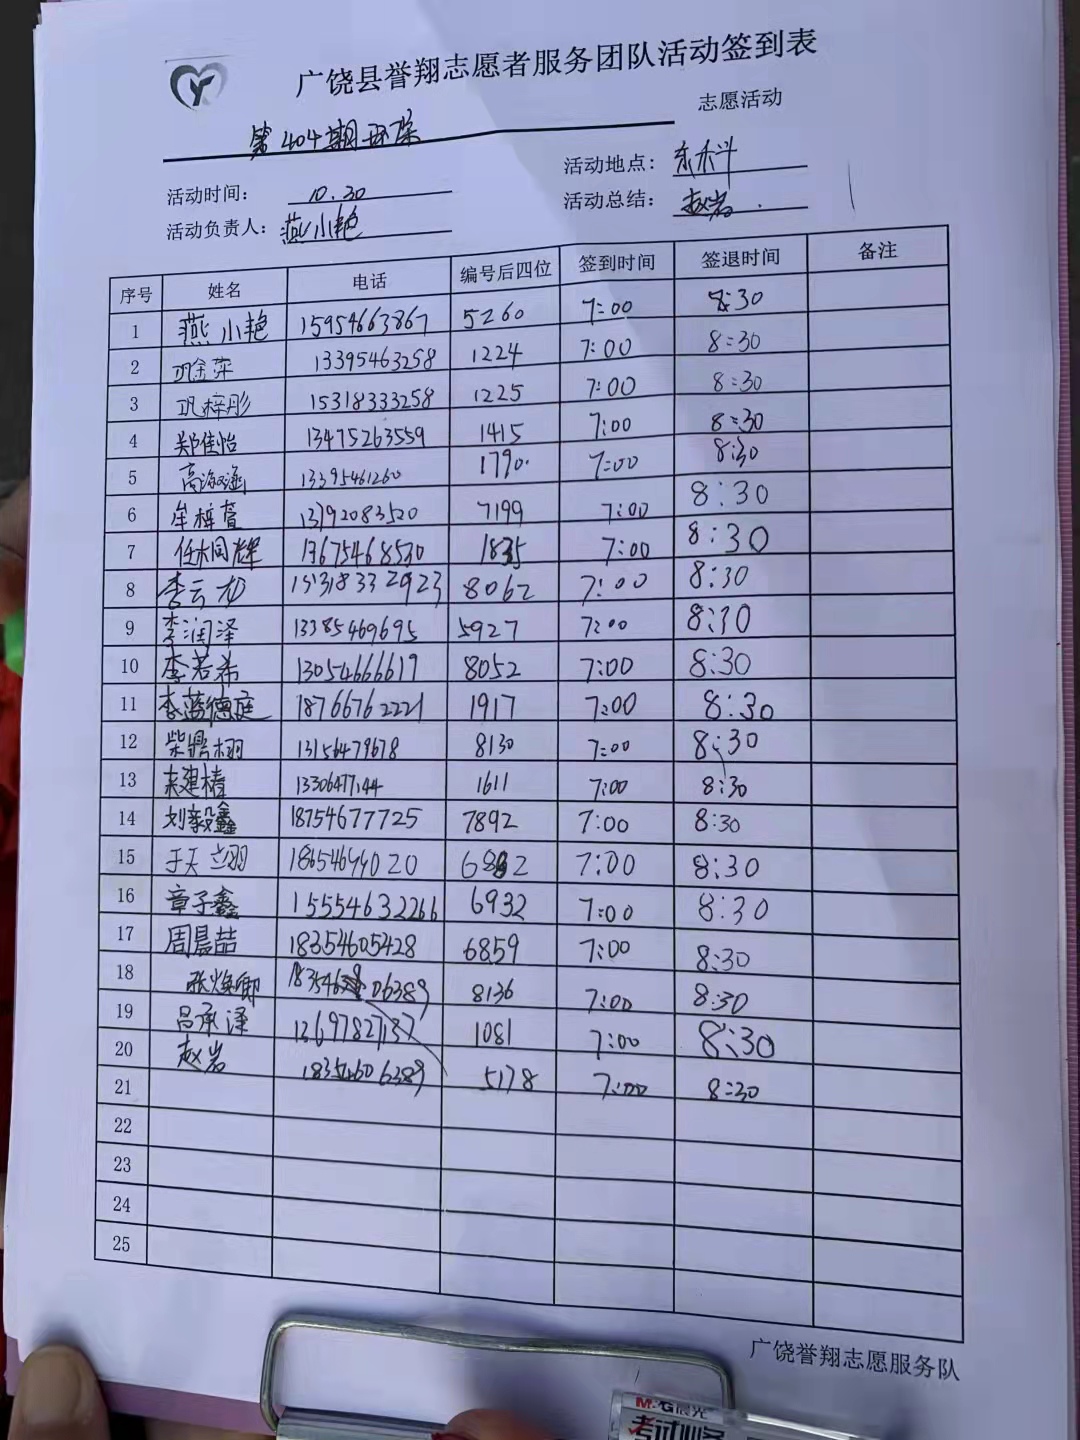 广饶县誉翔志愿者服务团队活动签到表
第404期环保 志愿活动
活动时间： 10.30 活动地点：东禾斗
活动负责人：燕小艳 活动总结：赵岩
序号 姓名 电话 编号后四位 签到时间 签退时间 备注
1 燕小艳 15954663867 5260 7:00 8:30
2 巩金萍 13395463258 1224 7:00 8:30
3 巩梓彤 15318333258 1225 7:00 8:30
4 郑佳怡 13475263559 1415 7:00 8:30
5 高海涵 13395461260 1790 7:00 8:30
6 牟梓萱 13792083520 7199 7:00 8:30
7 任桐辉 13675468530 1835 7:00 8:30
8 李云 15318332923 8062 7:00 8:30
9 李润泽 13385469695 5927 7:00 8:30
10 李若希 13054666619 8052 7:00 8:30
11 李蓝德庭 18766762221 1917 7:00 8:30
12 柴鼎栩 13156479678 8130 7:00 8:30
13 建椿 13306477144 1611 7:00 8:30
14 刘毅鑫 18754677725 7892 7:00 8:30
15 于天立羽 7:00 8:30
16 章子鑫 15554632266 6932 7:00 8:30
17 周晨喆 18354605428 6859 7:00 8:30
18 张焕卿 8136 7:00 8:30
19 吕承泽 13697827187 1081 7:00 8:30
20 赵岩 18354606389 5178 7:00 8:30
21
22
23
24
25
广饶誉翔志愿服务队
M&G晨光
考试必备